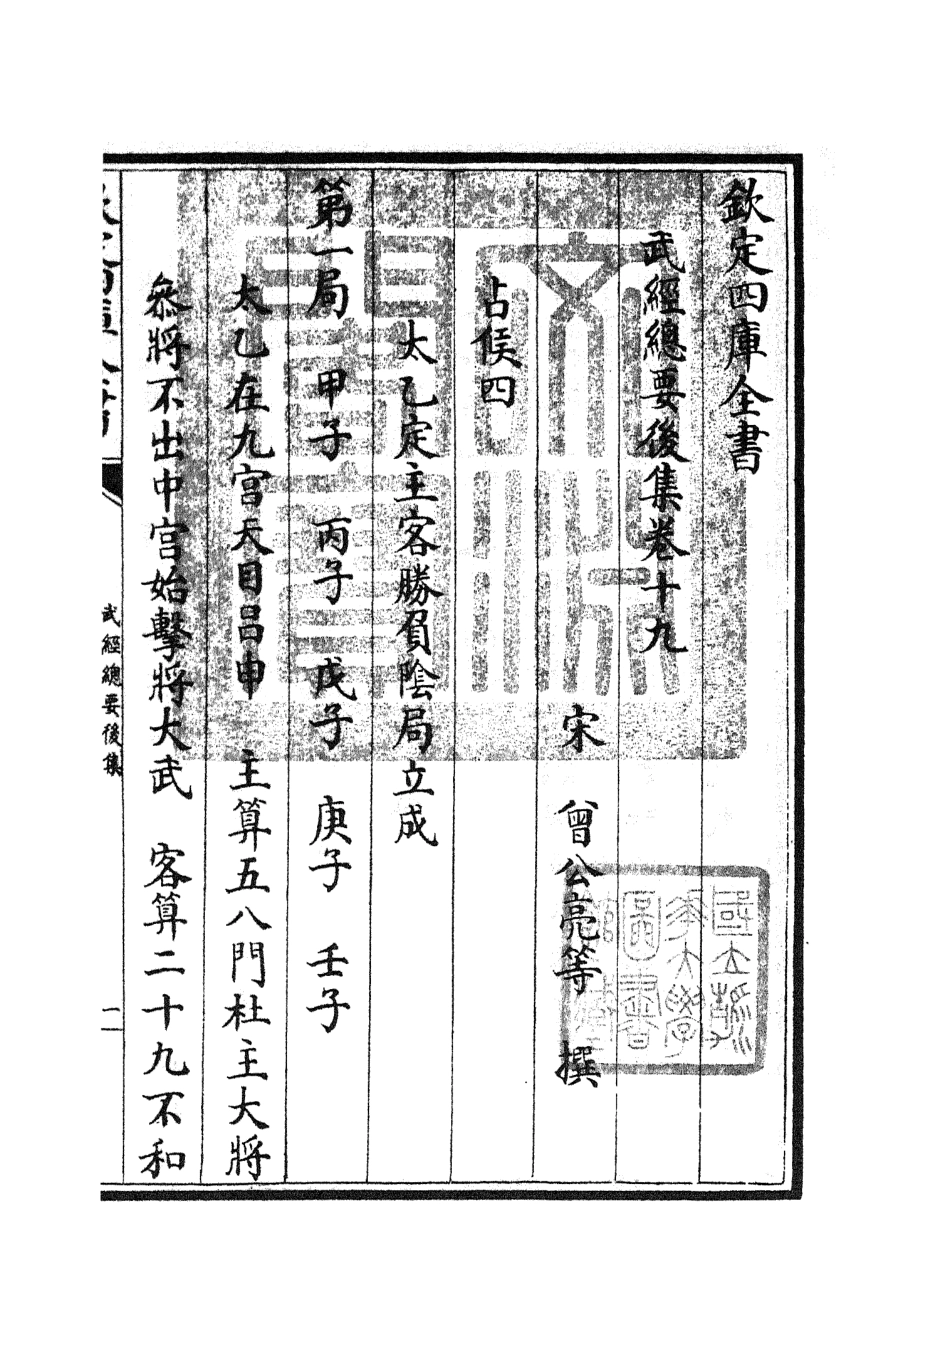 欽定四庫全書
武經總要後集卷十九
宋 曾公亮等 撰
占候四
太乙定主客勝負陰局立成
第一局 甲子 丙子 戊子 庚子 壬子
太乙在九宮天目呂申 主算五八門杜主大將
參將不出中宮始擊將大武 客算二十九不和
武經總要後集
一